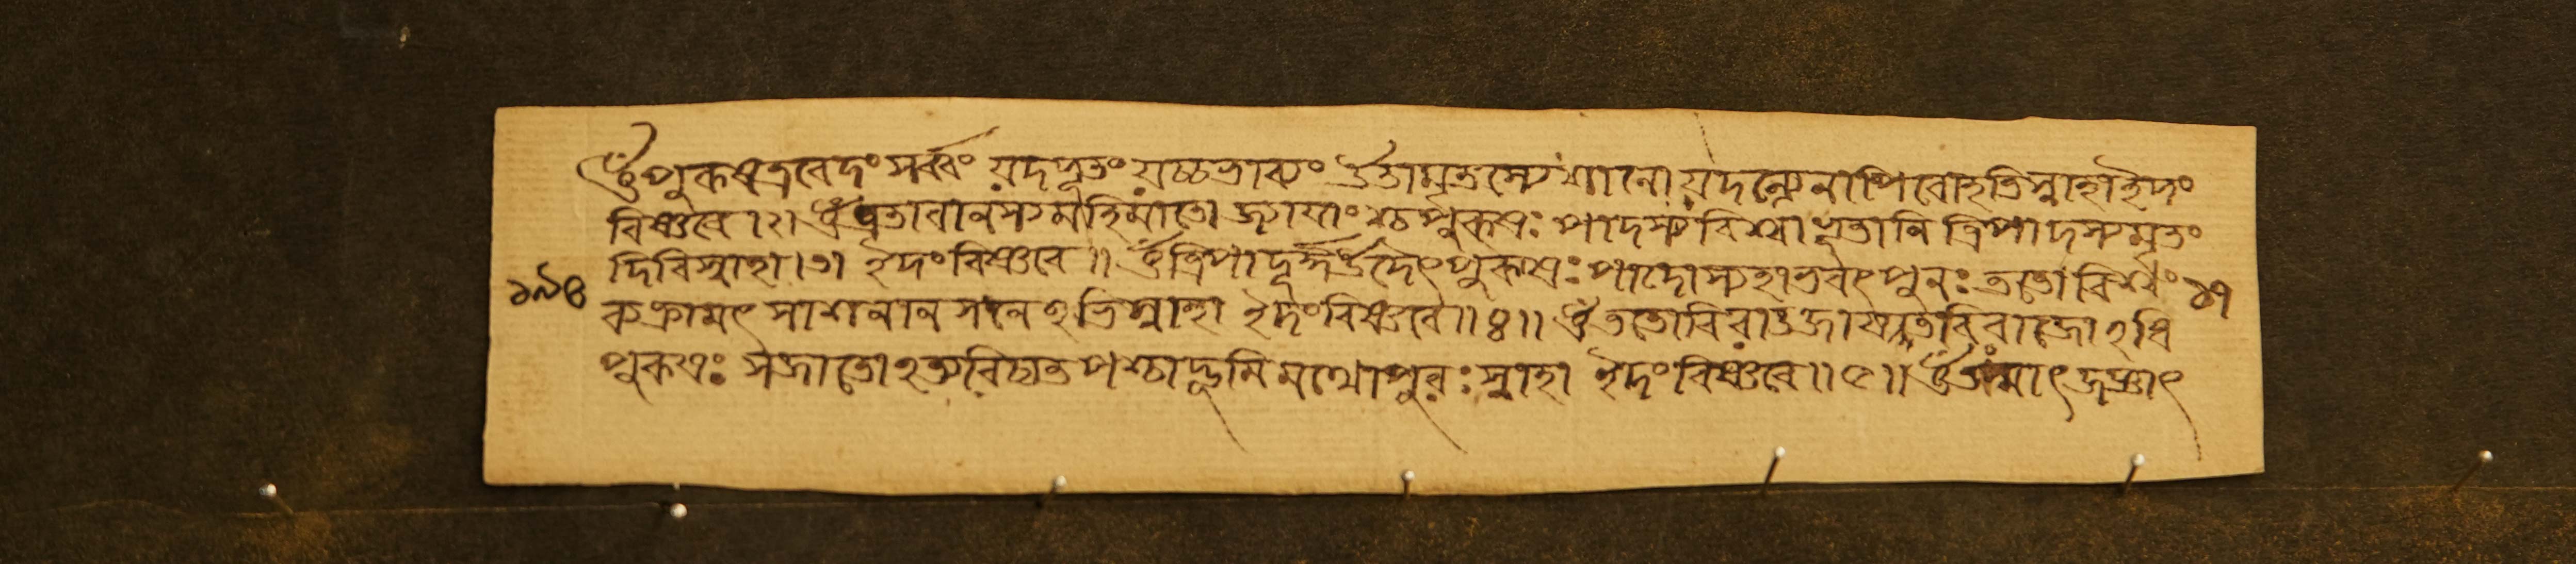 ওঁ পুরুষএবেদং সর্ব্বং যদ্ভূতং যচ্চভাব্যং উতামৃতস্যেশানো যদন্নেনাপিরোহতি স্বাহা ইদং
বিষ্ণবে ।২। ওঁ এতাবানস্যমহিমাতো জ্যায়াংশ্চ পুরুষঃ পাদস্যবিশ্বাভূতানি ত্রিপাদস্যমৃতং
দিবিস্বাহা ।৩। ইদংবিষ্ণবে ॥ ওঁ ত্রিপাদূর্দ্ধউদৈৎপুরুষঃ পাদোস্যহাভবৎ পুনঃ ততো বিশ্বং
ক্রামৎ সাশনানসনেঽভিস্বাহা ইদংবিষ্ণবে ॥৪॥ ওঁ ততোবিরাডজায়তবিরাজোঽধি
পুরুষঃ সজাতোঽত্যরিচ্যত পশ্চাদ্ভূমিমথোপুরঃ স্বাহা ইদংবিষ্ণবে ॥৫॥ ওঁ তস্মাৎযজ্ঞাৎ
১৯৪
১৭